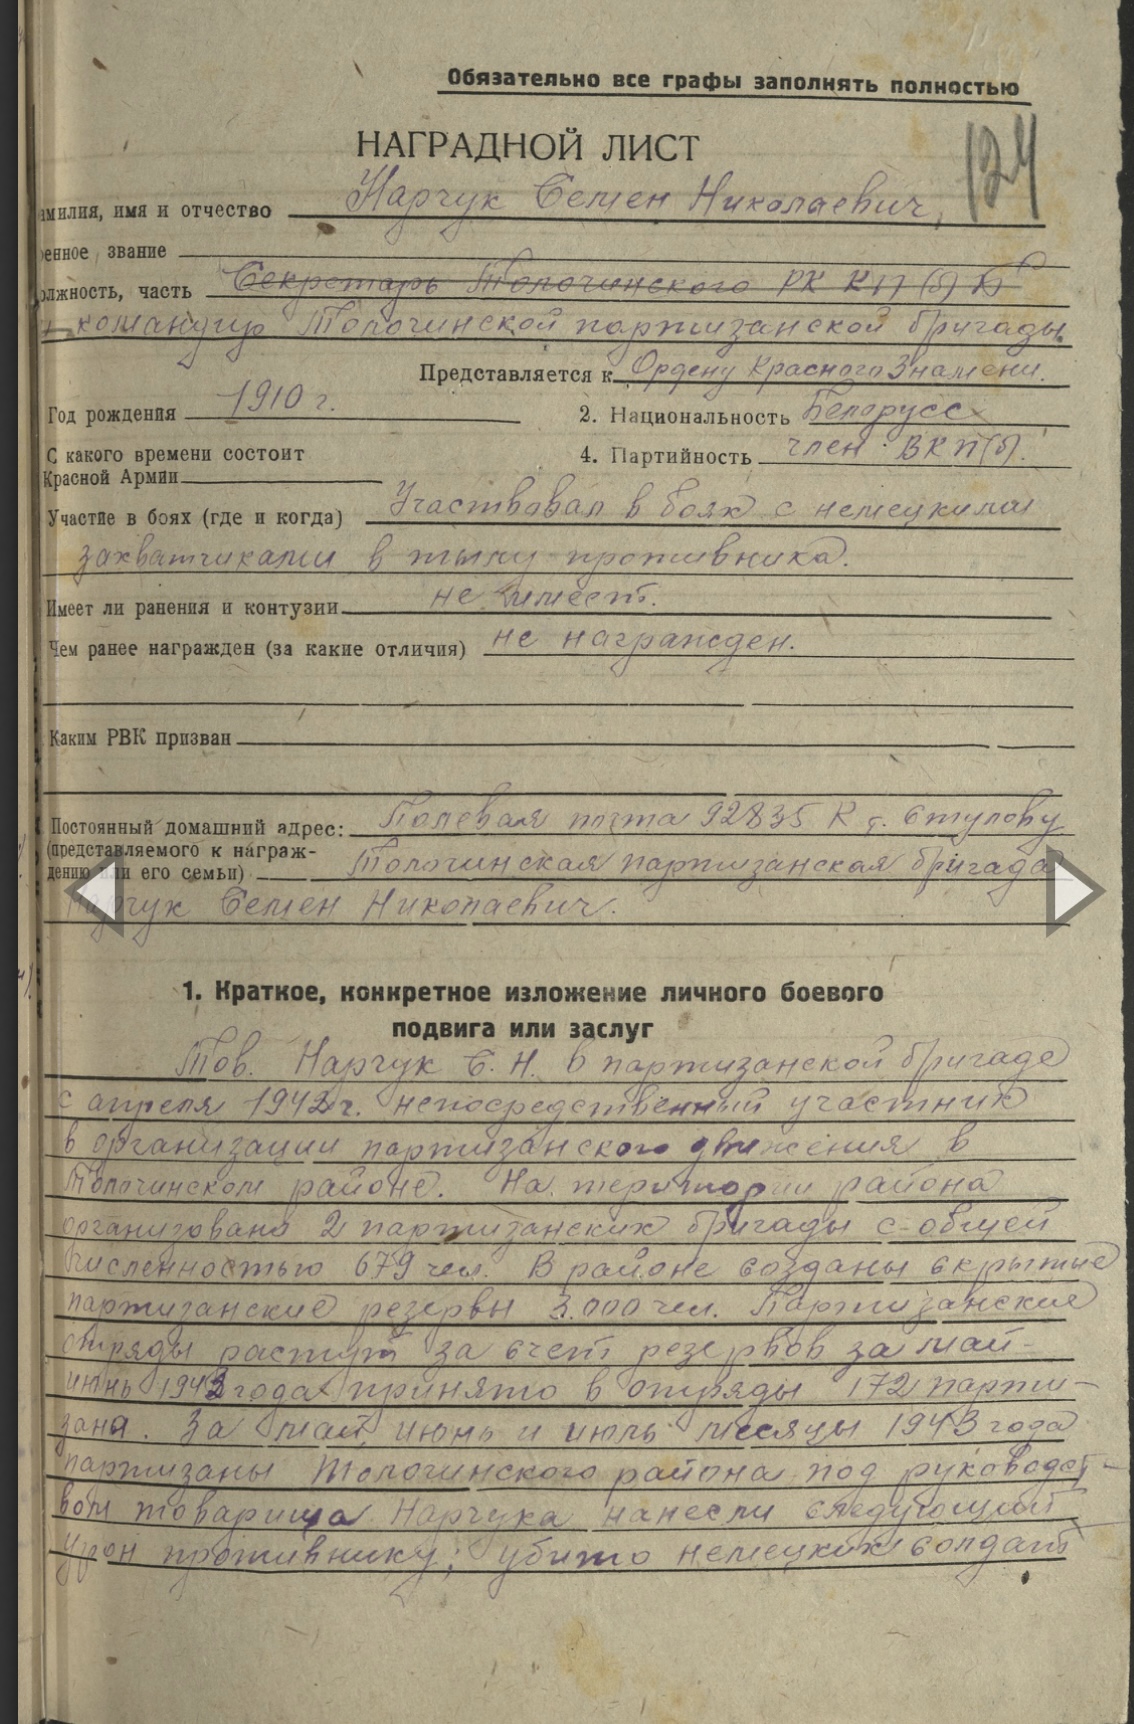 Обязательно все графы заполнять полностью
НАГРАДНОЙ ЛИСТ
124
амилия, имя и отчество Нарчук Семен Николаевич,
енное звание
олжность, часть Секретарь Толочинского РК КП(б)Б
и командир Толочинской партизанской бригады.
Представляется к Ордену Красного Знамени.
Год рождения 1910 г. 2. Национальность Белорусс
С какого времени состоит 4. Партийность член ВКП(б).
Красной Армии
Участие в боях (где и когда) Участвовал в боях с немецкими
захватчиками в тылу противника.
Имеет ли ранения и контузии не имеет.
Чем ранее награжден (за какие отличия) не награжден.
Каким РВК призван
Постоянный домашний адрес: Полевая почта 92835 К т. Ступову
(представляемого к награж-
дению или его семьи) Толочинская партизанская бригада
Нарчук Семен Николаевич.
1. Краткое, конкретное изложение личного боевого
подвига или заслуг
Тов. Нарчук С. Н. в партизанской бригаде
с апреля 1942 г. непосредственный участник
в организации партизанского движения в
Толочинском районе. На территории района
организовано 2 партизанских бригады с общей
численностью 679 чел. В районе созданы скрытые
партизанские резервы 3.000 чел. Партизанские
отряды растут за счет резервов за май-
июнь 1943 года принято в отряды 172 парти-
зана. За май, июнь и июль месяцы 1943 года
партизаны Толочинского района под руководст-
вом товарища Нарчука нанесли следующий
урон противнику: убито немецких солдат